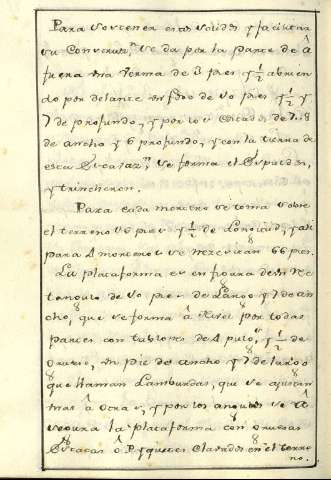 Para sostener estas solidas y facilitar
su Conversn. se da por la parte de â
fuera una Verma de 3 pies y ½ abrien
do por delante un foso de 10 pies y ½ y
7 de profundo, y por los costados de 7.8
de ancho y 6 profundo, y con la tierra de
esta se forma el Espaldon,
y trincheron.
Para cada mortero se toma sobre
el terreno 16 pies y ½ de Longitud, y asi
para 4 morteros se necesitan 66 pies.
La plataforma es en figura de un rec
tangulo de 10 pies de Largo y 7 de an
cho, que se forma â Nivel por todas
partes con tablones de 4 pulgs. y ½ de
Grueso, un pie de ancho y 7 de largo
que llaman Lamburdas, que se ajustan
unas â otras, y por los angulos se â
segura la plataforma con gruesas
Estacas ô Piquetes Clavados en el terre
no.